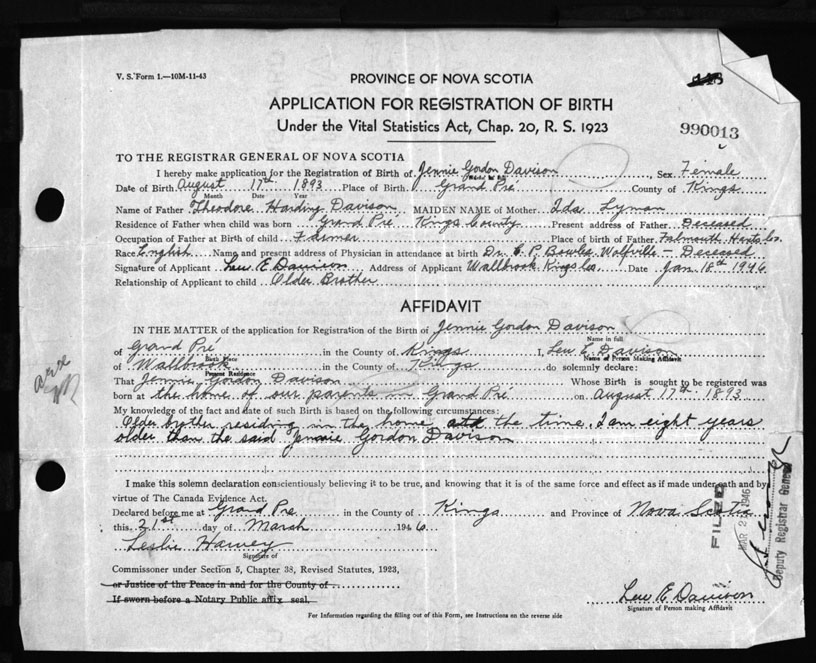 V. S. Form 1.—10M-11-43
PROVINCE OF NOVA SCOTIA
APPLICATION FOR REGISTRATION OF BIRTH
Under the Vital Statistics Act, Chap. 20, R. S. 1923
990013
TO THE REGISTRAR GENERAL OF NOVA SCOTIA
I hereby make application for the Registration of Birth of Jennie Gordon Davison Sex Female
Date of Birth August 17th 1893 Place of Birth Grand Pré County of Kings
Month Date Year
Name of Father Theodore Harding Davison MAIDEN NAME of Mother Ida Lyman
Residence of Father when child was born Grand Pre Kings County Present address of Father Deceased
Occupation of Father at Birth of child Farmer Place of birth of Father Falmouth Hants Co.
Race English Name and present address of Physician in attendance at birth Dr. E. P. Bowles Wolfville - Deceased
Signature of Applicant Lew E Davison Address of Applicant Wallbrook Kings Co. Date Jan 18th 1946
Relationship of Applicant to child Older Brother
AFFIDAVIT
IN THE MATTER of the application for Registration of the Birth of Jennie Gordon Davison
Name in full
of Grand Pré in the County of Kings I, Lew E. Davison
Birth Place Name of Person Making Affidavit
of Wallbrook in the County of Kings do solemnly declare:
Present Residence
That Jennie Gordon Davison Whose Birth is sought to be registered was
born at the home of our parents in Grand Pré on August 17th 1893
My knowledge of the fact and date of such Birth is based on the following circumstances:
Older brother residing in the home at the time, I am eight years
older than the said Jennie Gordon Davison
I make this solemn declaration conscientiously believing it to be true, and knowing that it is of the same force and effect as if made under oath and by
virtue of The Canada Evidence Act.
Declared before me at Grand Pre in the County of Kings and Province of Nova Scotia
this 21st day of March 1946.
Leslie Harvey
Signature of
Commissoner under Section 5, Chapter 38, Revised Statutes, 1923,
or Justice of the Peace in and for the County of
If sworn before a Notary Public affix seal.
Lew E Davison
Signature of Person making Affidavit
For Information regarding the filling out of this Form, see Instructions on the reverse side
FILED
Deputy Registrar General